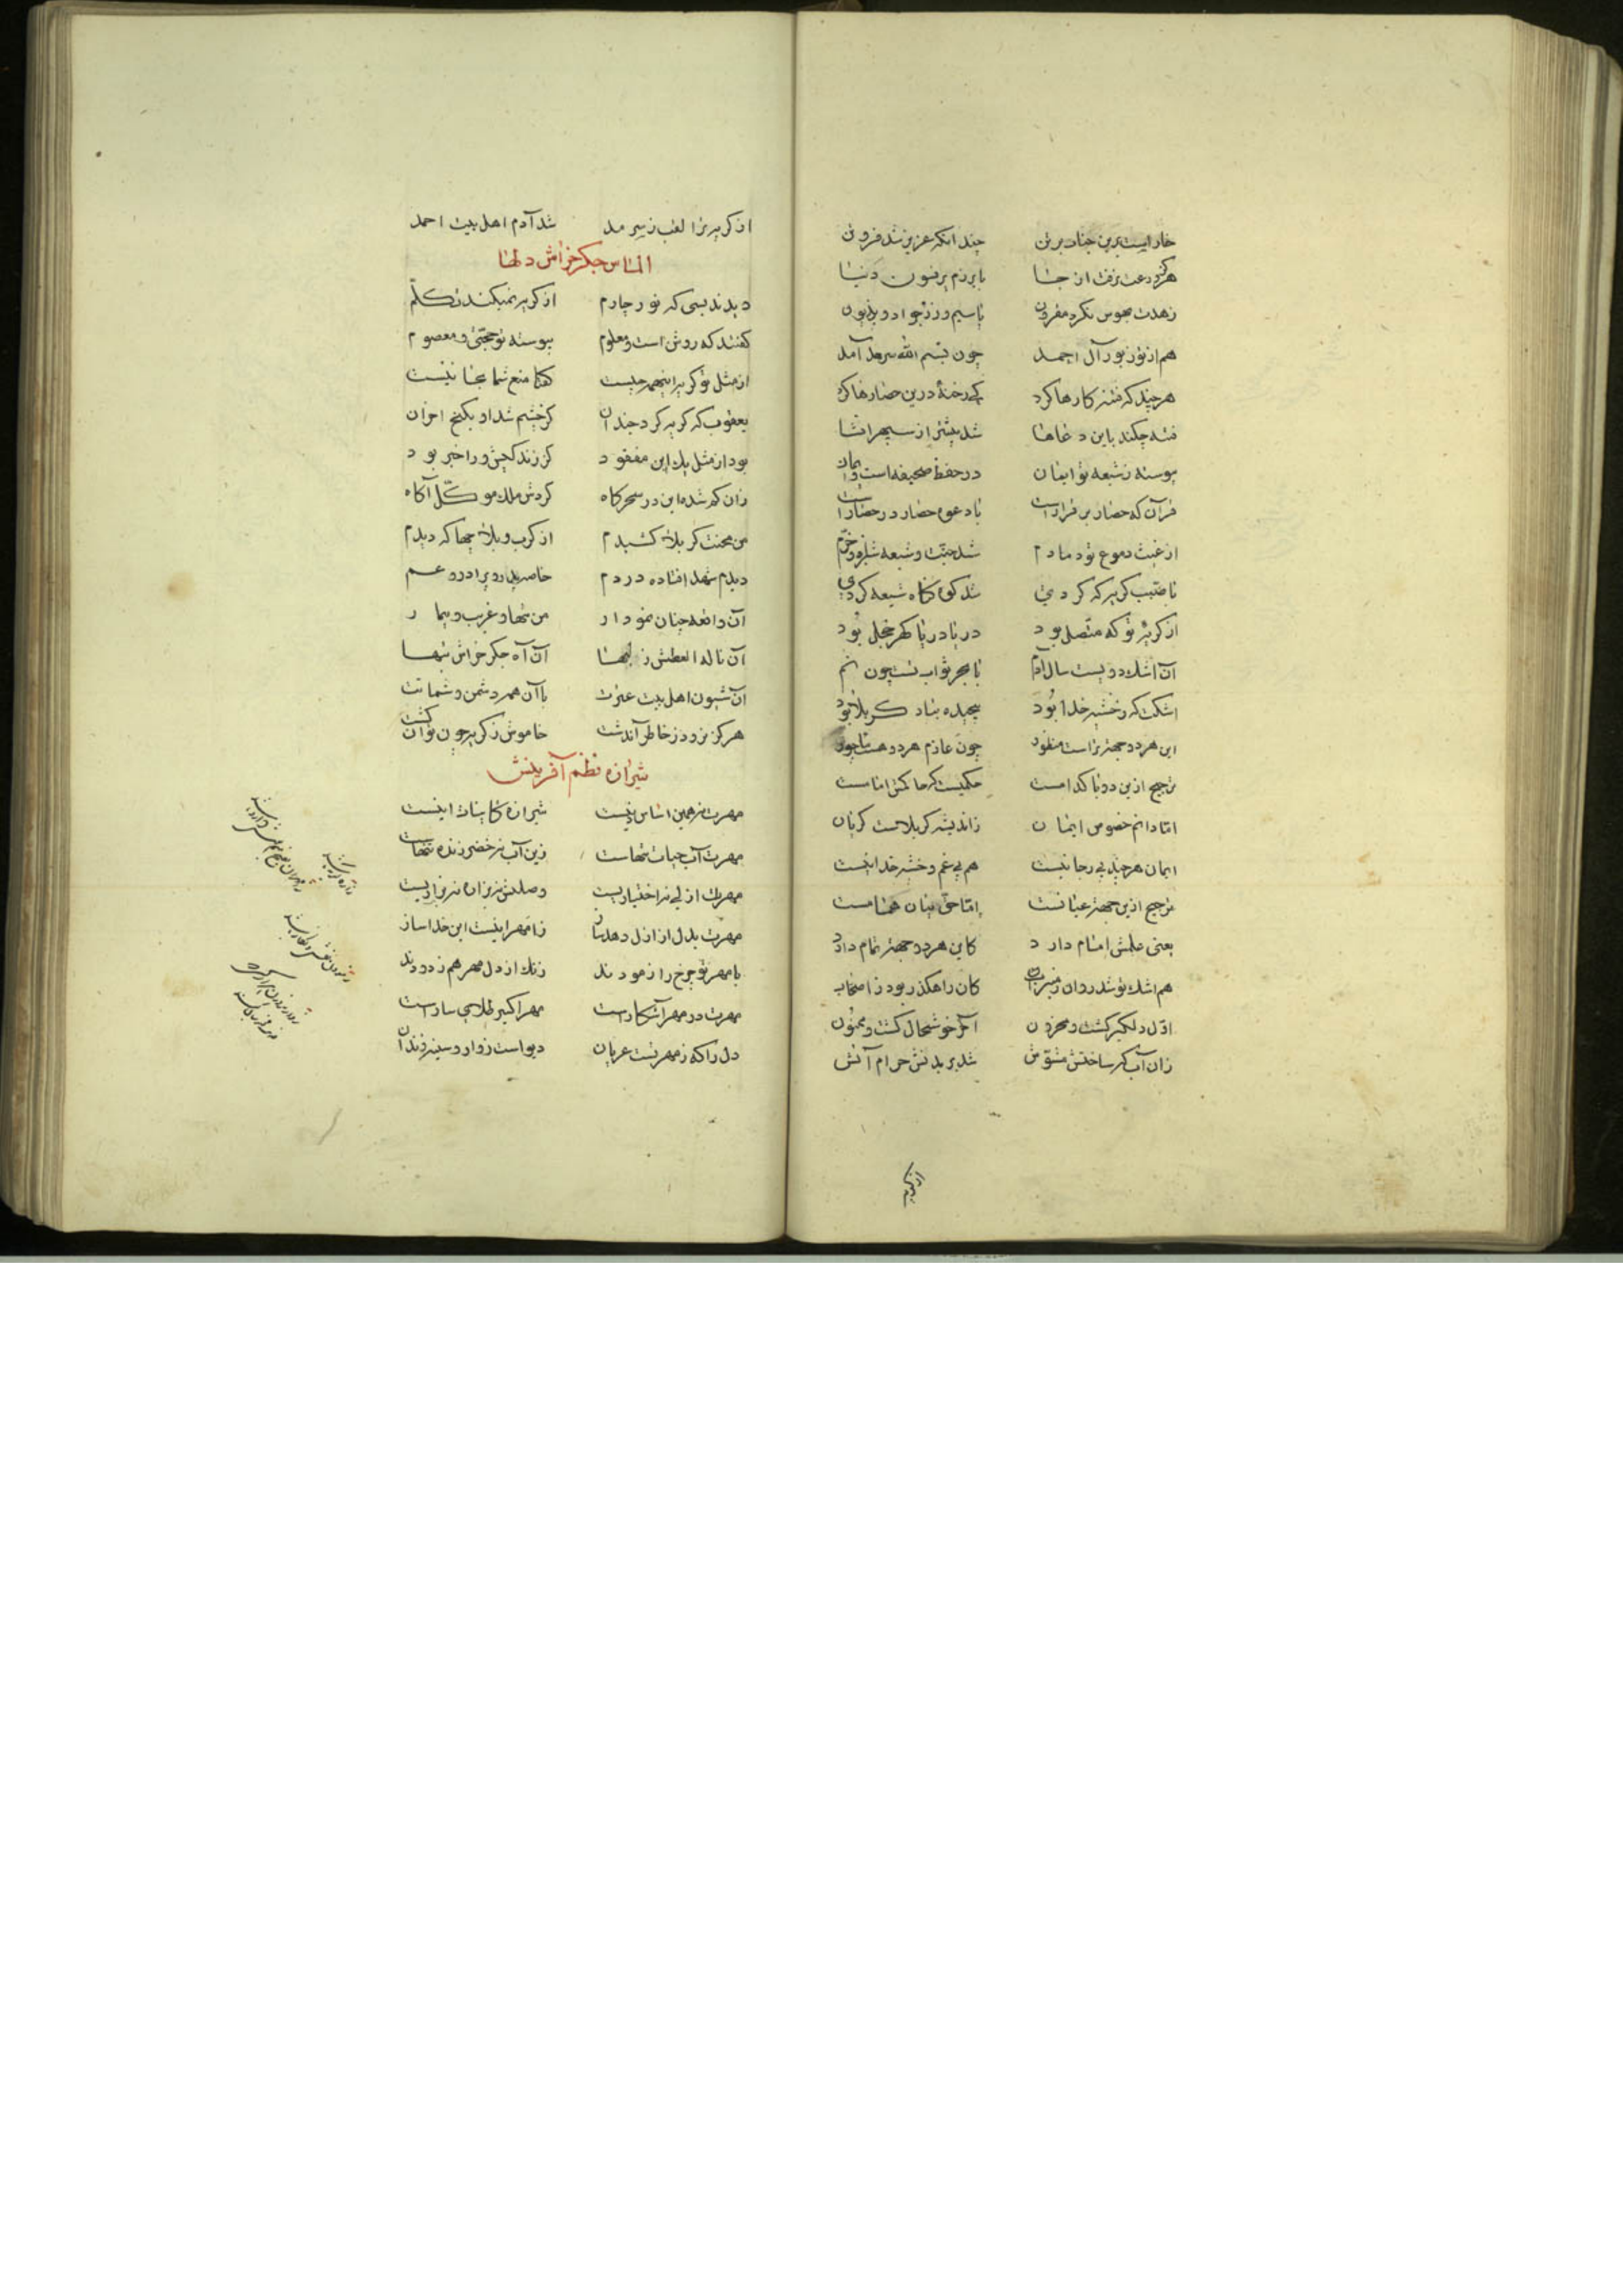 خاریست برین جناب برتن چند انکه عزیز شد فزون تن
هرگز دعت نرفت از جا با بزم پر فسون دنیا
زهدت بهوس نکرد مقرون با سیم و زر چو
هم از تو زبور آل احمد چون بسم الله سرمد آمد
هر چند که فتنه کارها کرد کی رخنه درین حصارها کرد
فتنه چکند باین دعاها شد بیشتر از سپهر انشا
پیوسته ز شیعه تو ایمان در حفظ صحیفه است و امان
قرآن که حصار بر قرار است با دعوه حصار در حصار است
از غیث دموع تو دمادم شد جنت و شیعه سبز و خرم
تا صبب گریه که کردی شد کوه گناه شیعه گردی
از گریه تو که متصل بود دریا دریا گهر خجل بود
آن اشک دویست سال آدم با بحر ثواب تست چون نم
اشکت که ز خشیه خدا بود پیچیده بیاد کربلا بود
این هر دو جهة تراست منظور چون عازم هر دو هست
ترجیح ازین دو با کدامست حکمیست که حاکمش امامست
اما دانم خصوص ایمان ز اندیشه کربلاست گریان
ایمان هر چند بی رجا نیست هم بی غم و خشیه خدا نیست
ترجیح ازین جهة عیانست اما حق بیان همانست
یعنی علمش امام دارد کاین هر دو جهة تمام دارد
هم اشک تو شد روان ز میزاب کان راهگذر بود ز اصحاب
اول دلگیر گشت و محزون آخر خوشحال گشت و ممنون
زان آب که ساختش مشوش شد بر بدنش حرام آتش
از گریه
از گریه ترا لقب ز سرمد شد آدم اهل بیت احمد
الماس جگر خراش دلها
دیدند بسی که نور چارم از گریه نمیکند تکلم
گفتند که روشن است و معلوم پیوسته تو حجتی و معصوم
از مثل تو گریه اینهمه چیست گفتا منع شما بجا نیست
یعقوب که گریه کرد چندان کز چشم شد او بکنج احزان
بود از مثل یک ابن مفقود کز زندگیش ورا خبر بود
زان گم شده ابن در سحرگاه کردش ملک موکل آگاه
من محنت کربلا کشیدم از کرب و بلا چها که دیدم
دیدم شهدا فتاده در دم خاصه پدر و برادر و عم
آن واقعه چنان نمودار من تنها و غریب و بیمار
آن ناله العطش ز لبها آن آه جگر خراش شبها
آن شیون اهل بیت عترت با آن همه دشمن و شماتت
هرگز نرود ز خاطر آن دشت خاموش ز گریه چون توان گشت
شیرازه نظم آفرینش
مهرت نه همین اساس دینست شیرازه کاینات اینست
مهرت آب حیات تنهاست زین آب نه خضر زنده تنهاست
مهرت ازلی نه اختیاریست وصلش نه بزاه نه بزاریست
مهرت بدل از ازل دهد ساز زا مهر اینست این خدا ساز
با مهر تو چرخ را نمودند زنگ از دل مهر هم زدودند
مهرت در مهر آشکار است مهر اکسیر طلای سار است
دل را که ز مهر تست عریان دیو است ز وار و سینه زندان